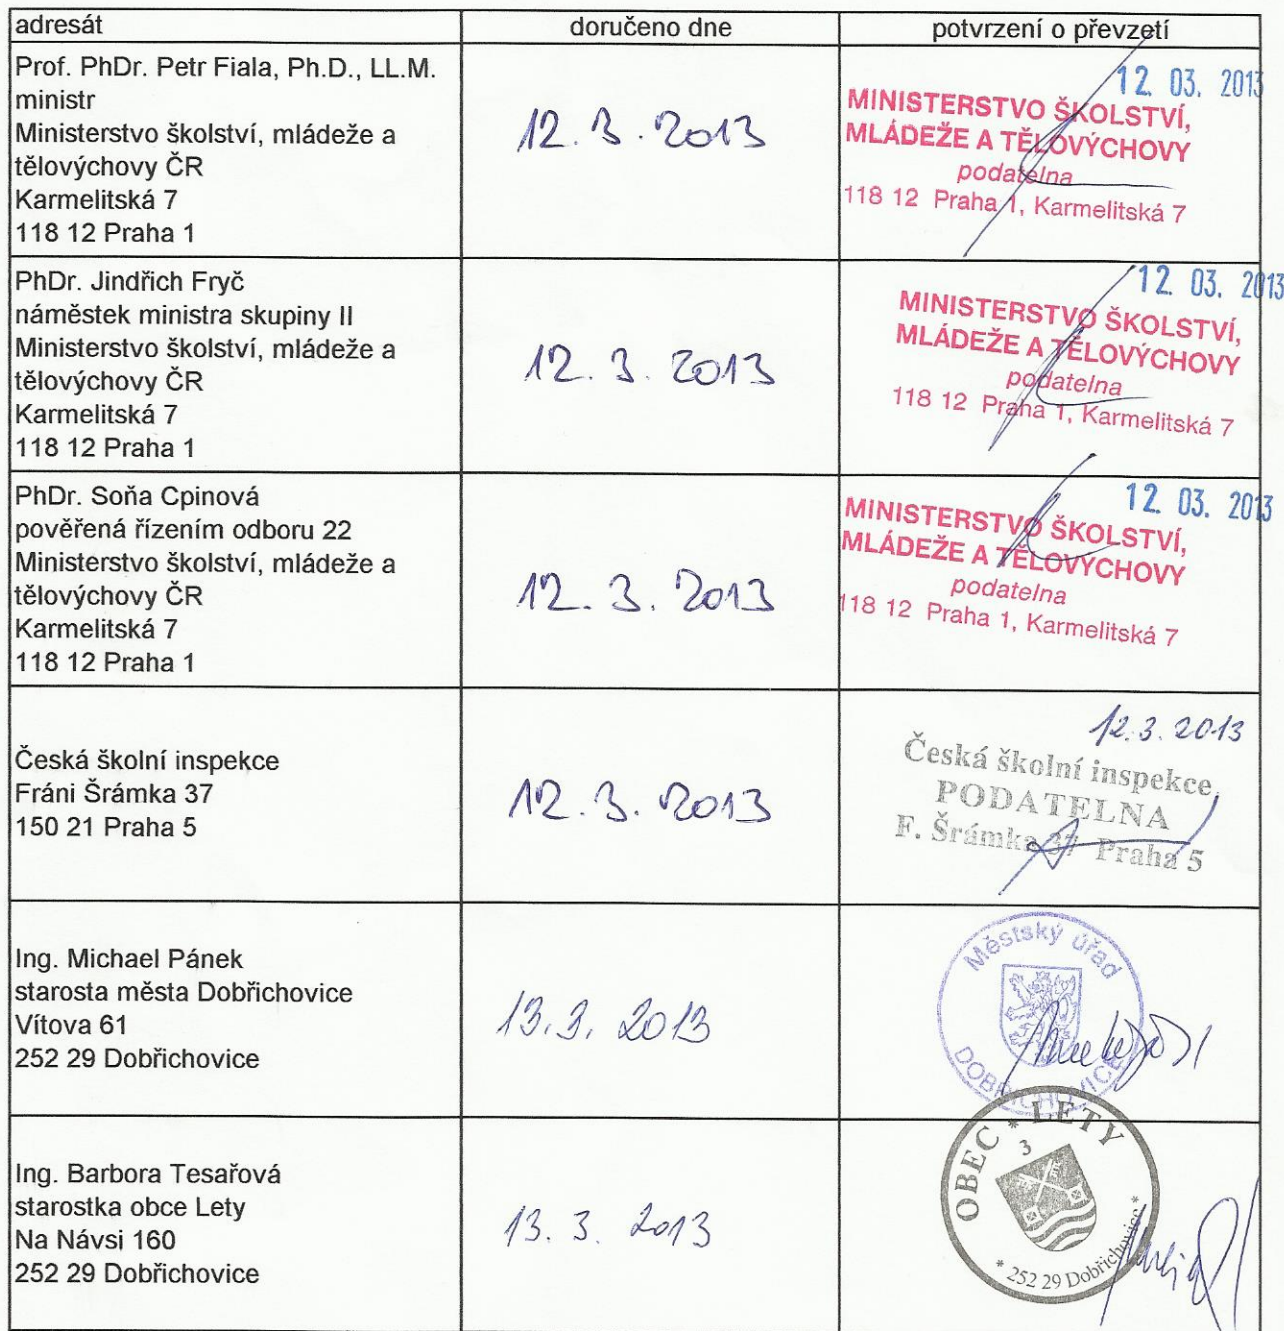 adresát
doručeno dne
potvrzení o převzetí
Prof. PhDr. Petr Fiala, Ph.D., LL.M.
ministr
Ministerstvo školství, mládeže a
tělovýchovy ČR
Karmelitská 7
118 12 Praha 1
12. 3. 2013
12. 03. 2013
MINISTERSTVO ŠKOLSTVÍ,
MLÁDEŽE A TĚLOVÝCHOVY
podatelna
118 12 Praha 1, Karmelitská 7
PhDr. Jindřich Fryč
náměstek ministra skupiny II
Ministerstvo školství, mládeže a
tělovýchovy ČR
Karmelitská 7
118 12 Praha 1
12. 3. 2013
12. 03. 2013
MINISTERSTVO ŠKOLSTVÍ,
MLÁDEŽE A TĚLOVÝCHOVY
podatelna
118 12 Praha 1, Karmelitská 7
PhDr. Soňa Cpinová
pověřená řízením odboru 22
Ministerstvo školství, mládeže a
tělovýchovy ČR
Karmelitská 7
118 12 Praha 1
12. 3. 2013
12. 03. 2013
MINISTERSTVO ŠKOLSTVÍ,
MLÁDEŽE A TĚLOVÝCHOVY
podatelna
118 12 Praha 1, Karmelitská 7
Česká školní inspekce
Fráni Šrámka 37
150 21 Praha 5
12. 3. 2013
12. 3. 2013
Česká školní inspekce
PODATELNA
F. Šrámka 37 Praha 5
Ing. Michael Pánek
starosta města Dobřichovice
Vítova 61
252 29 Dobřichovice
13. 3. 2013
Městský úřad
DOBŘICHOVICE
Ing. Barbora Tesařová
starostka obce Lety
Na Návsi 160
252 29 Dobřichovice
13. 3. 2013
OBEC * LETY
3
* 252 29 Dobřichovice *